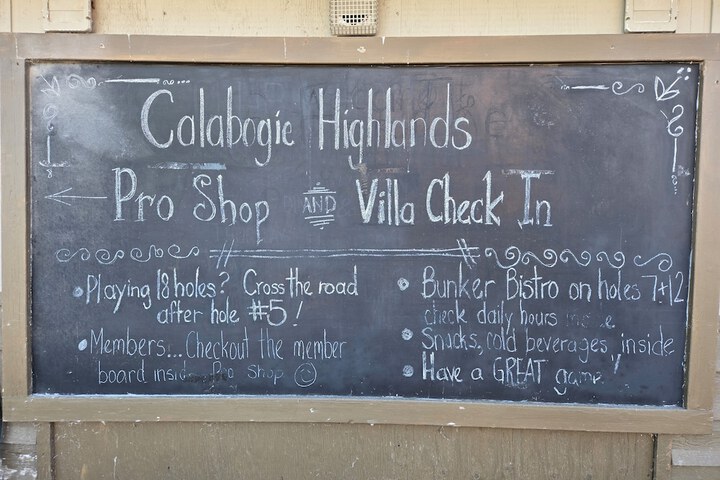 Calabogie Highlands
Pro Shop AND Villa Check In
• Playing 18 holes? Cross the road
after hole #5!
• Members... Checkout the member
board insi Pro Shop ☺
• Bunker Bistro on holes 7+12
check daily hours
• Snacks, cold beverages, inside
• Have a GREAT game!